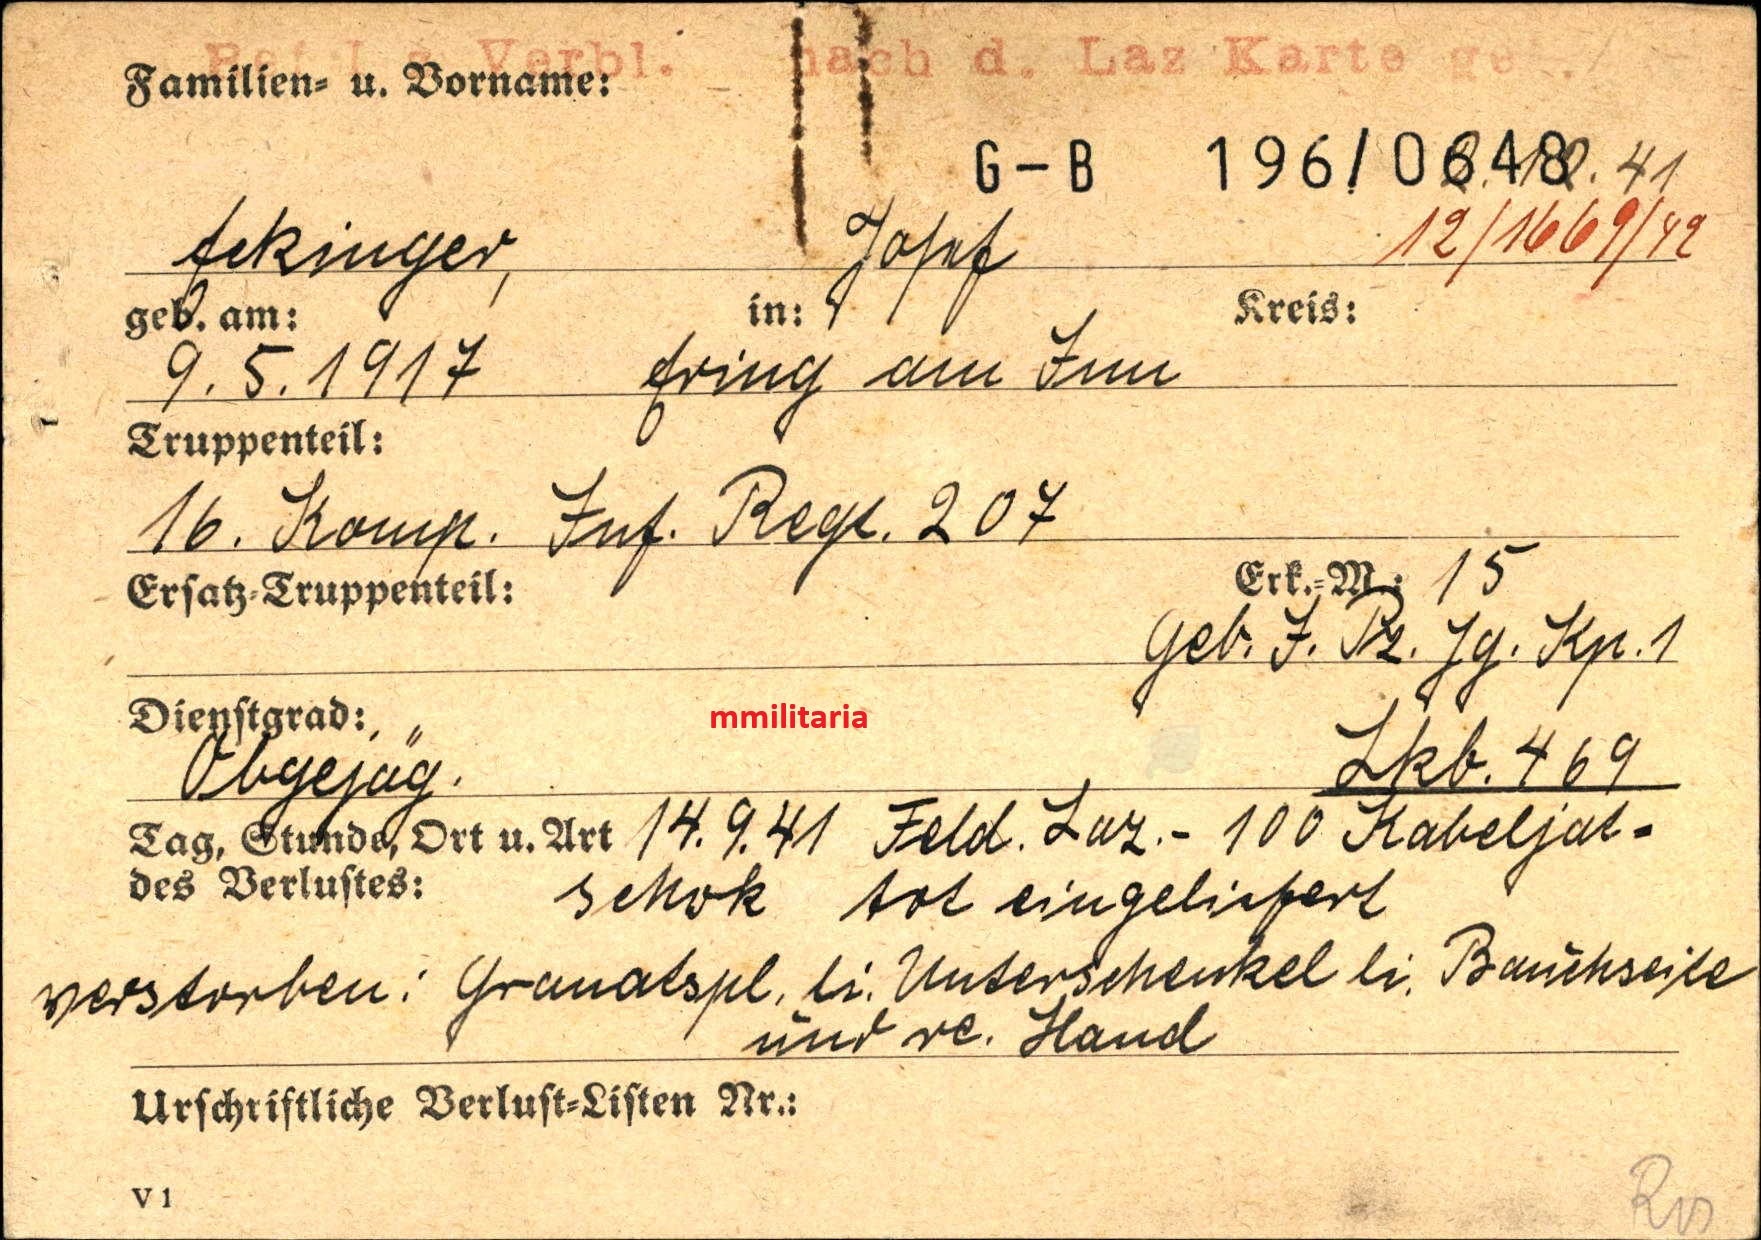 Verbl. nach d. Laz Karte
Familien- u. Vorname:
G-B 196/0648 41
12/1669/42
Eckinger, Josef
geb. am: in: Kreis:
9.5.1917 Ering am Inn
Truppenteil:
16. Komp. Inf. Regt. 207
Ersatz-Truppenteil: Erk.-M.: 15
Geb. J. Pz. Jg. Kp. 1
Dienstgrad: mmilitaria
Obgejäg. Lkb. 469
Tag, Stunde, Ort u. Art 14.9.41 Feld. Laz. - 100 Kabeljat-
des Verlustes: schok tot eingeliefert
verstorben: Granatspl. li. Unterschenkel li. Bauchseite
und re. Hand
Urschriftliche Verlust-Listen Nr.:
V 1